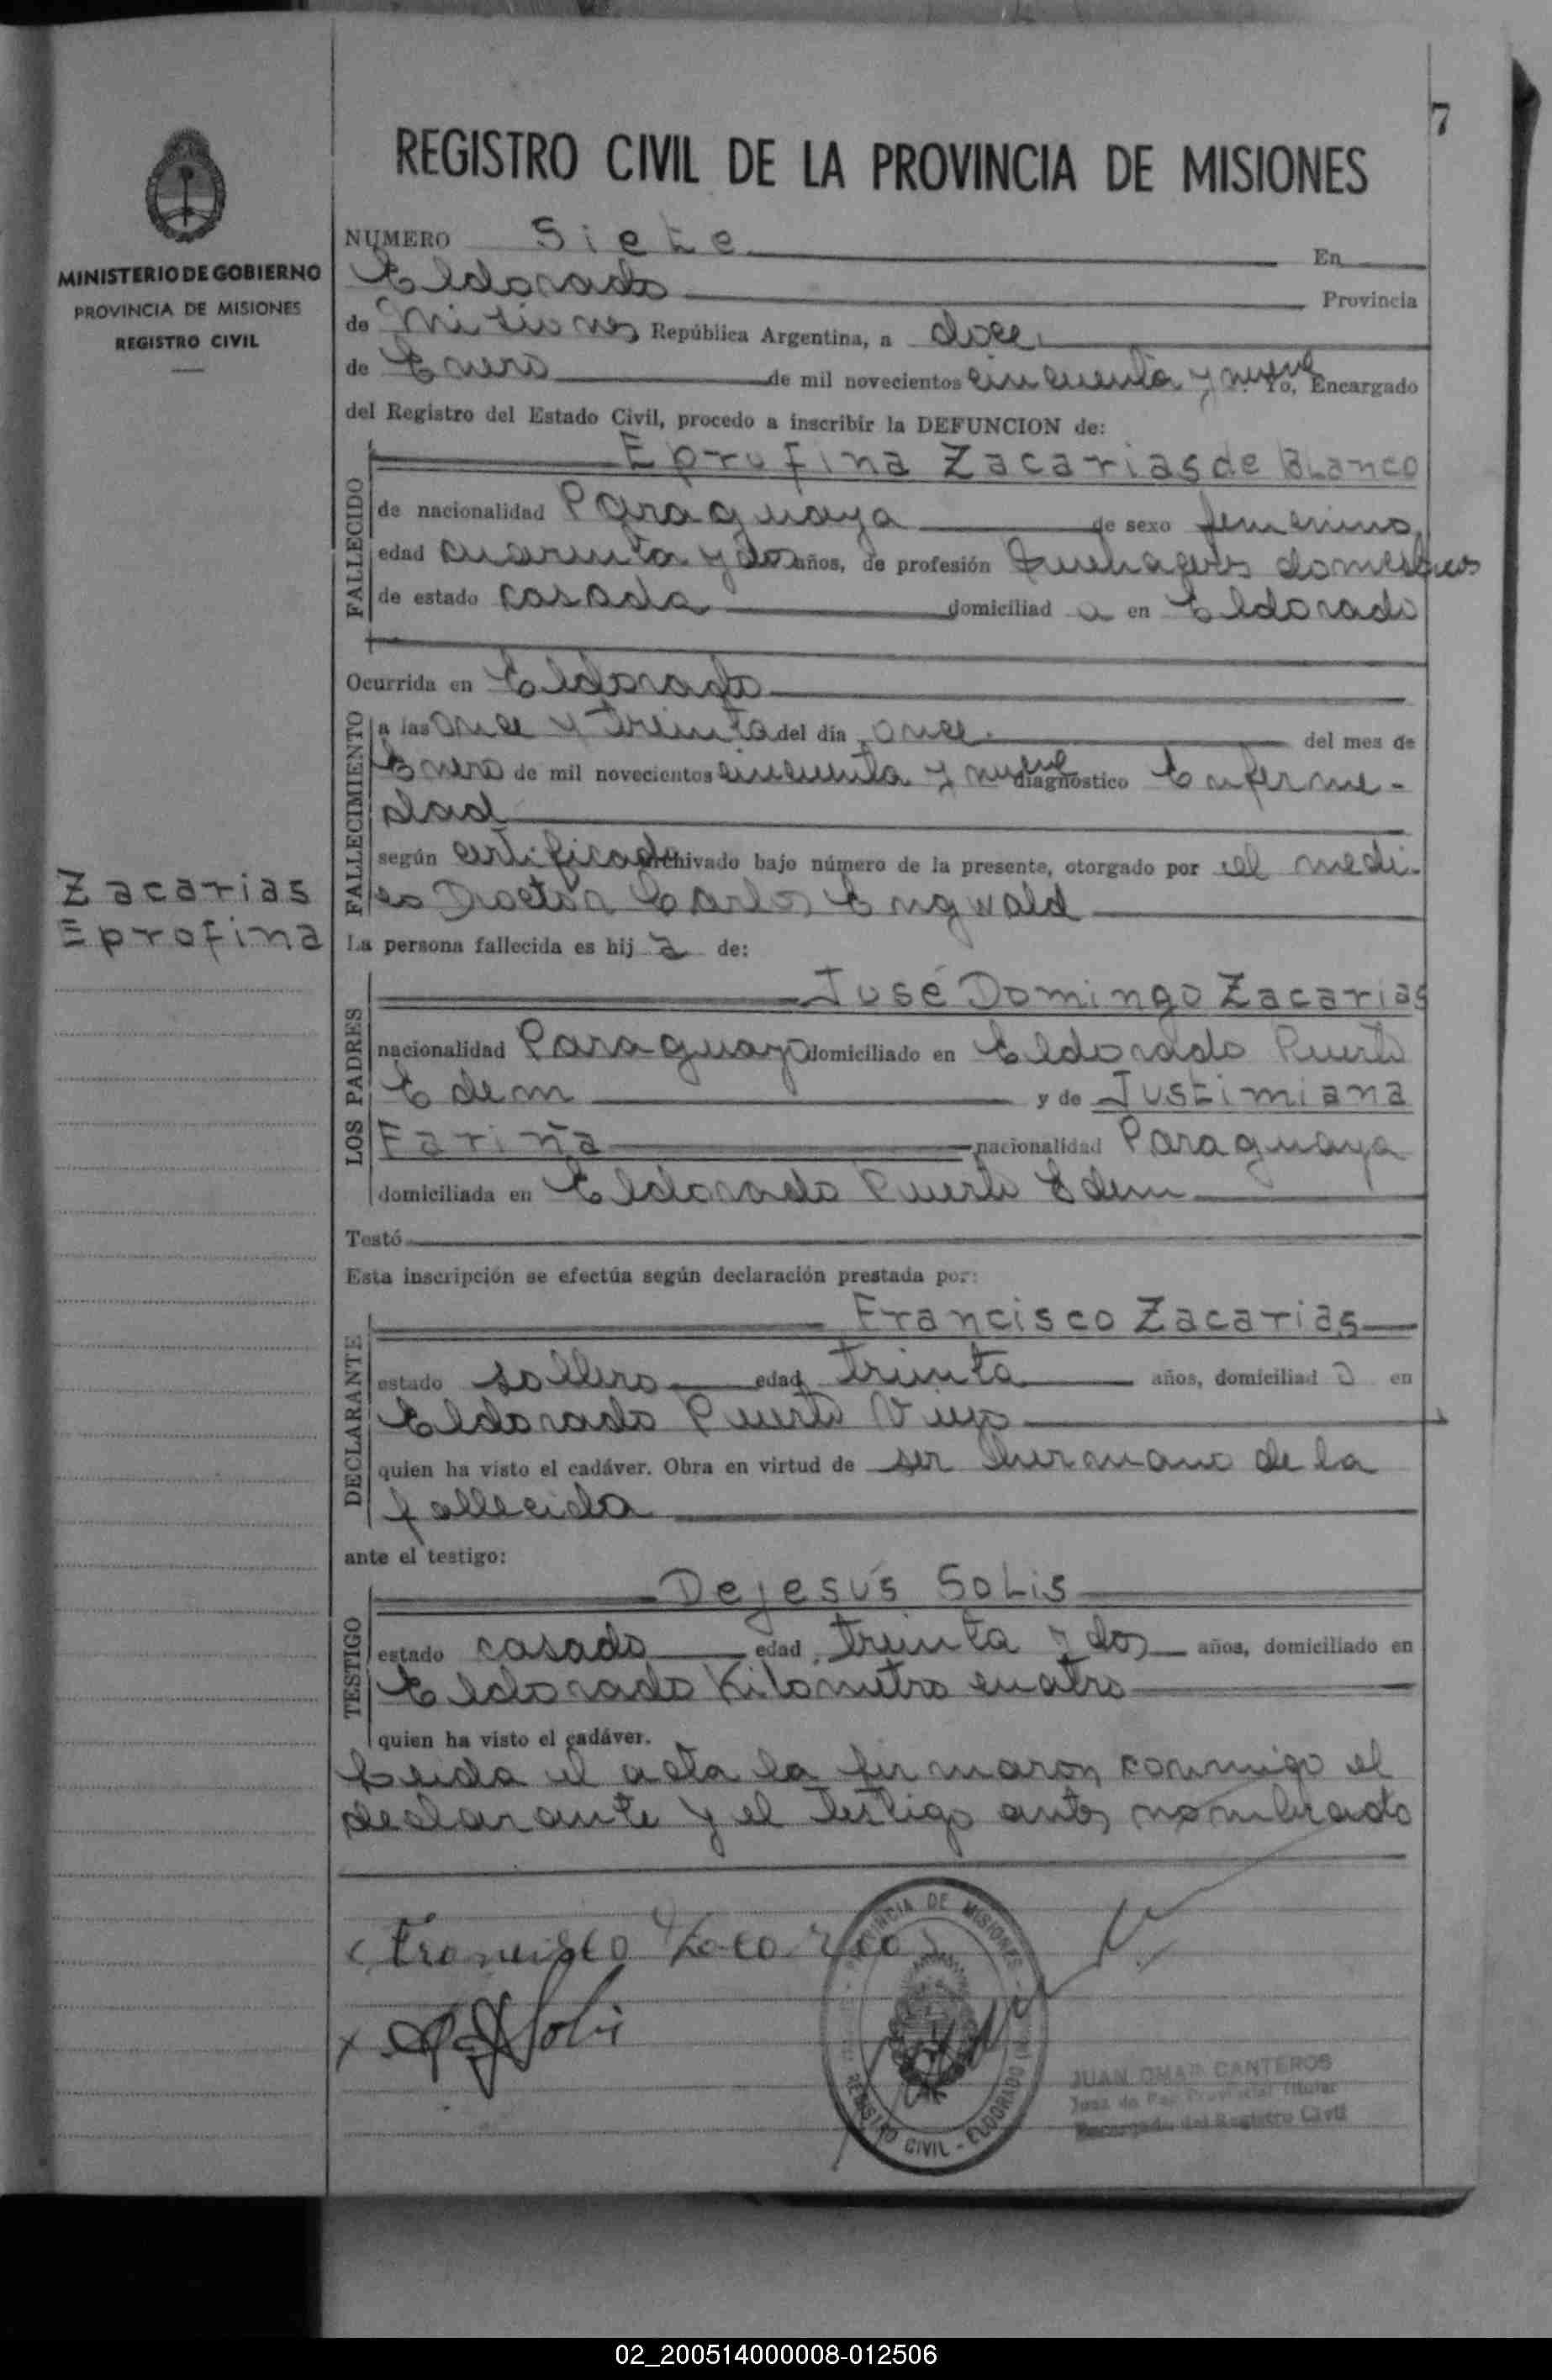 7
REGISTRO CIVIL DE LA PROVINCIA DE MISIONES
MINISTERIO DE GOBIERNO
PROVINCIA DE MISIONES
REGISTRO CIVIL
NUMERO Siete En
Eldorado Provincia
de Misiones República Argentina, a doce
de Enero de mil novecientos cincuenta y nueve Yo, Encargado
del Registro del Estado Civil, procedo a inscribir la DEFUNCION de:
FALLECIDO
Eprofina Zacarias de Blanco
de nacionalidad Paraguaya de sexo femenino
edad cuarenta y dos años, de profesión Quehaceres domesticos
de estado casada domiciliad a en Eldorado
Ocurrida en Eldorado
FALLECIMIENTO
a las once y treinta del día once del mes de
Enero de mil novecientos cincuenta y nueve diagnóstico Enferme-
dad
según certificado archivado bajo número de la presente, otorgado por el medi-
co Doctor Carlos Engwald
Zacarias
Eprofina
La persona fallecida es hij a de:
LOS PADRES
José Domingo Zacarias
nacionalidad Paraguayo domiciliado en Eldorado Puerto
Edem y de Justimiana
Fariña nacionalidad Paraguaya
domiciliada en Eldorado Puerto Edem
Testó
Esta inscripción se efectúa según declaración prestada por:
DECLARANTE
Francisco Zacarias
estado soltero edad treinta años, domiciliad o en
Eldorado Puerto Viejo
quien ha visto el cadáver. Obra en virtud de ser hermano de la
fallecida
ante el testigo:
TESTIGO
Dejesús Solis
estado casado edad treinta y dos años, domiciliado en
Eldorado Kilometro cuatro
quien ha visto el cadáver.
Leida el acta la firmaron conmigo el
declarante y el testigo antes nombrado
Francisco Zacarias
Solis
PROVINCIA DE MISIONES
REGISTRO CIVIL - ELDORADO
JUAN OMAR CANTEROS
Juez de Paz Provincial Titular
Encargado del Registro Civil
02_200514000008-012506